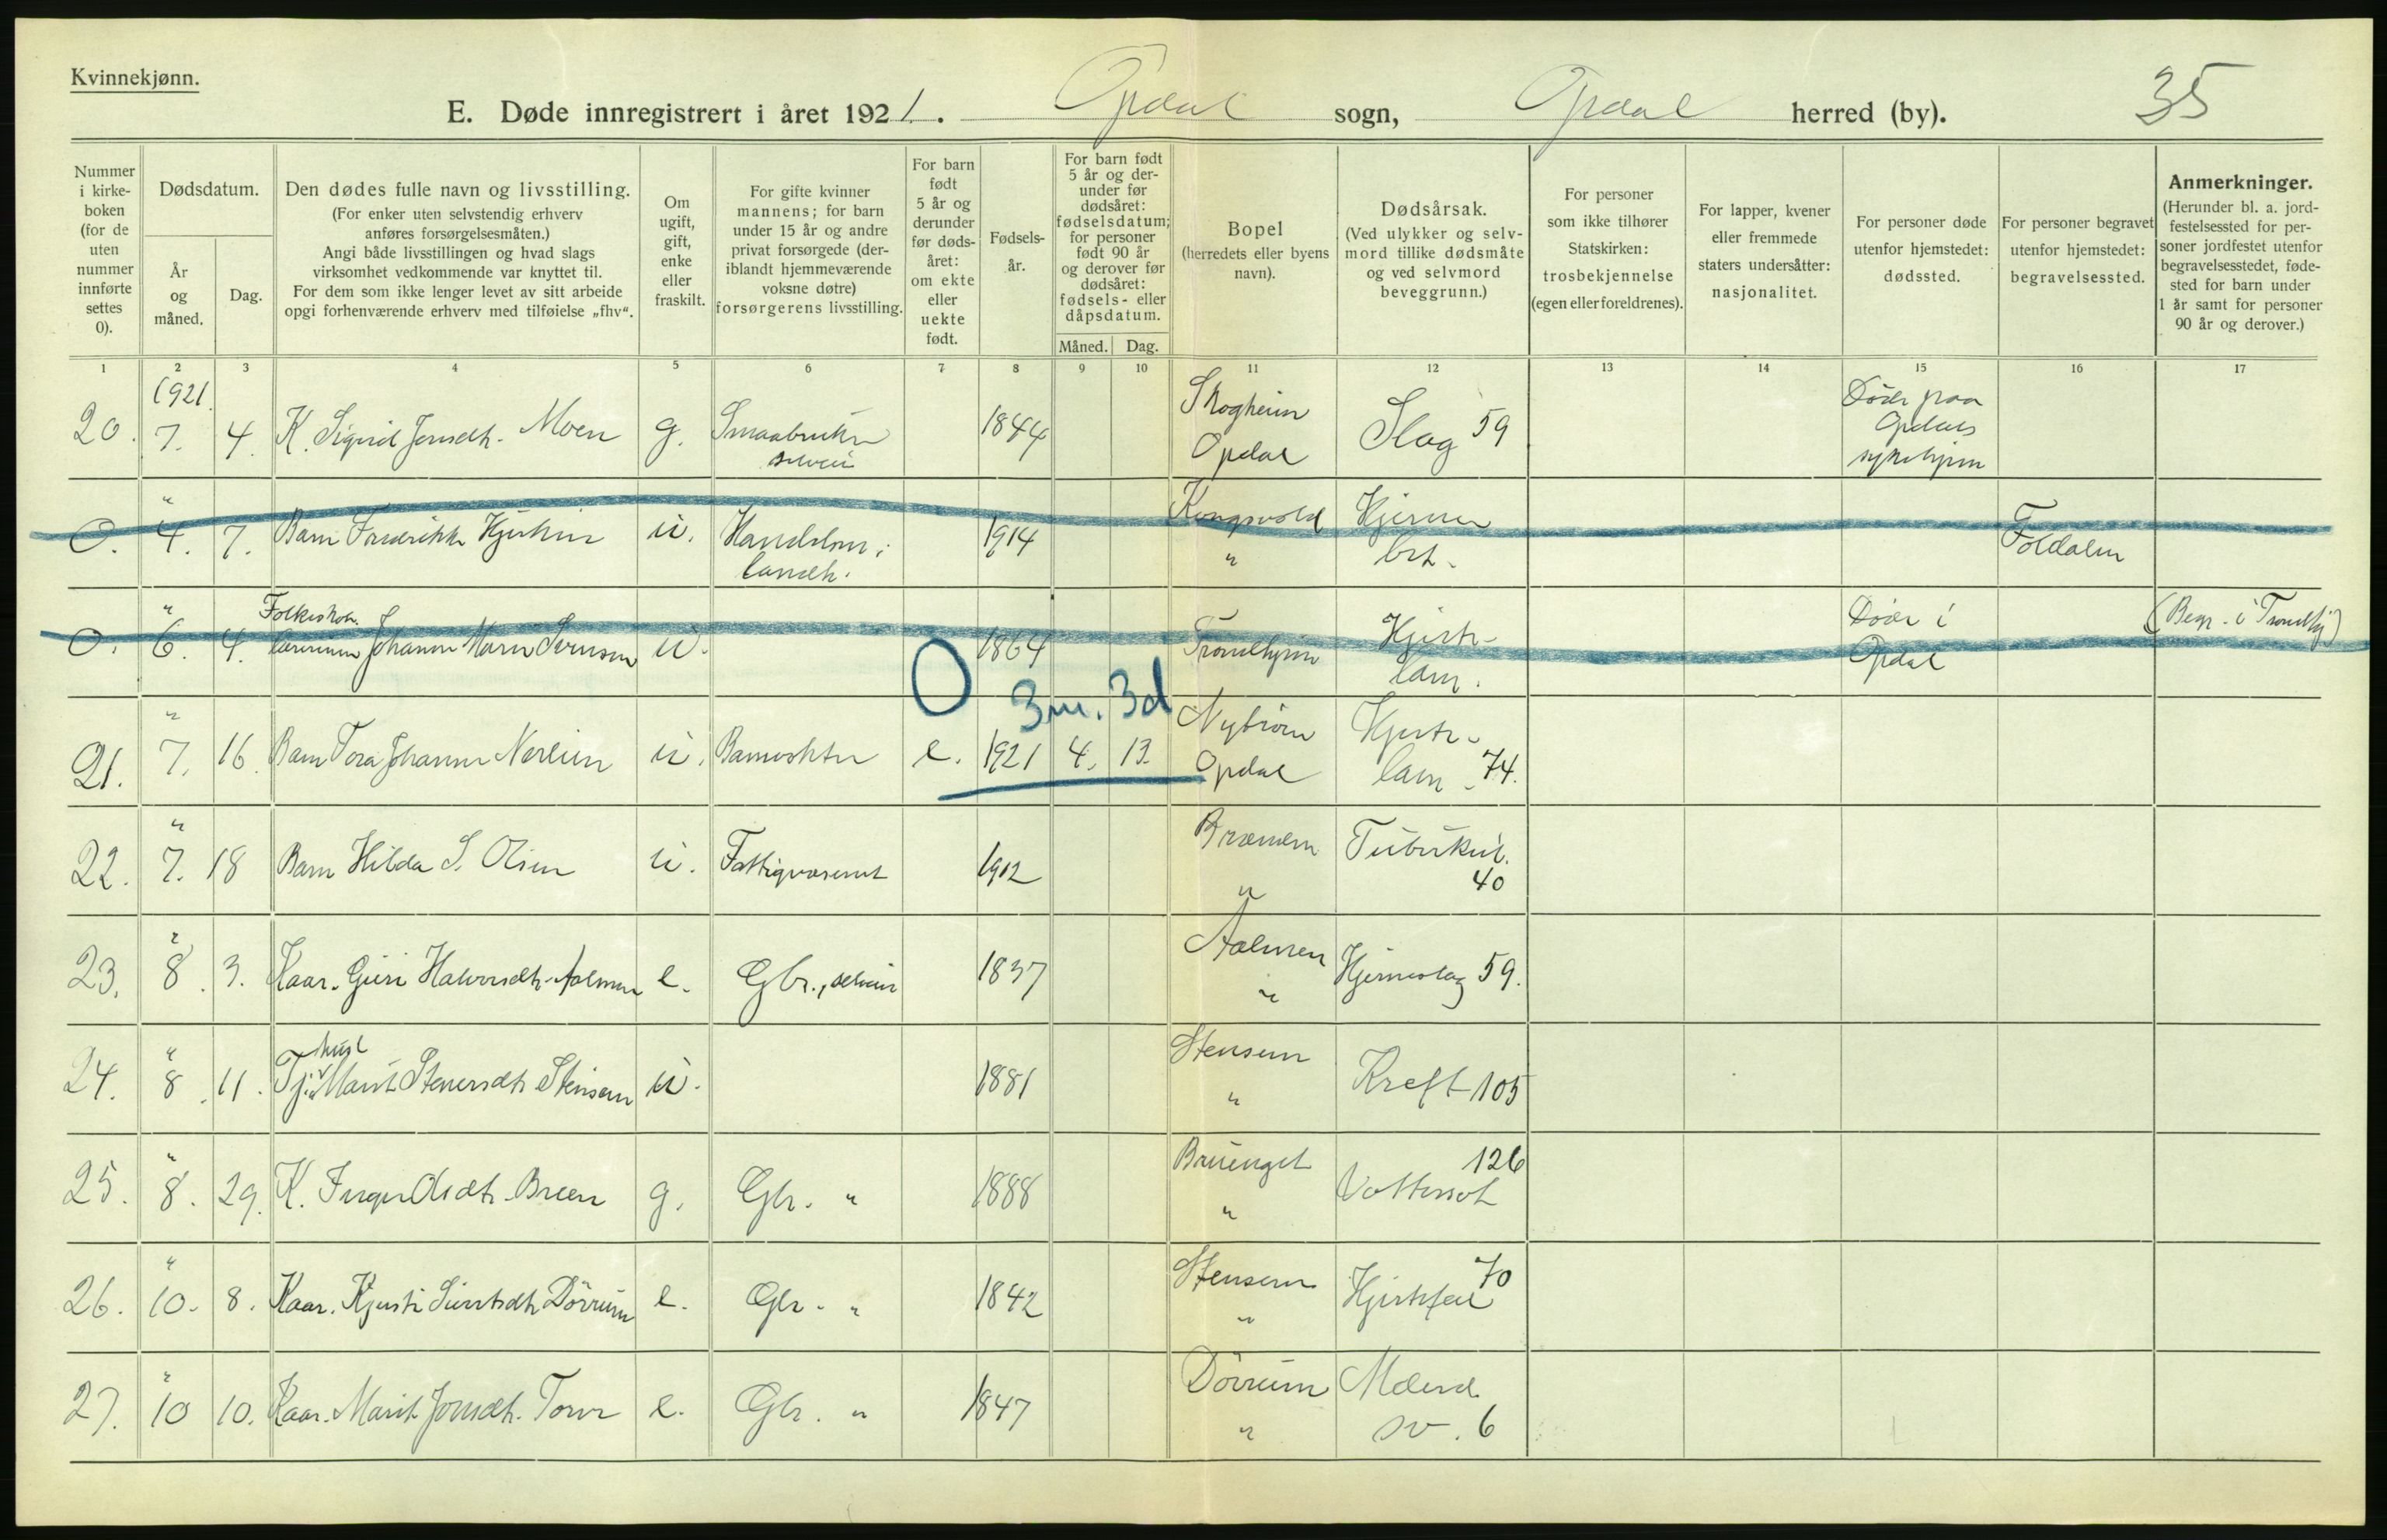 Kvinnekjønn.
E. Døde innregistrert i året 1921. Opdal sogn, Opdal herred (by). 35
Nummer i kirke-boken (for de uten nummer innførte settes 0).
Dødsdatum.
År og måned.
Dag.
Den dødes fulle navn og livsstilling.
(For enker uten selvstendig erhverv
anføres forsørgelsesmåten.)
Angi både livsstillingen og hvad slags
virksomhet vedkommende var knyttet til.
For dem som ikke lenger levet av sitt arbeide
opgi forhenværende erhverv med tilføielse „fhv“.
Om
ugift,
gift,
enke
eller
fraskilt.
For gifte kvinner
mannens; for barn
under 15 år og andre
privat forsørgede (der-
iblandt hjemmeværende
voksne døtre)
forsørgerens livsstilling.
For barn
født
5 år og
derunder
før døds-
året:
om ekte
eller
uekte
født.
Fødsels-
år.
For barn født
5 år og der-
under før
dødsåret:
fødselsdatum;
for personer
født 90 år
og derover før
dødsåret:
fødsels- eller
dåpsdatum.
Måned. Dag.
Bopel
(herredets eller byens
navn).
Dødsårsak.
(Ved ulykker og selv-
mord tillike dødsmåte
og ved selvmord
beveggrunn.)
For personer
som ikke tilhører
Statskirken:
trosbekjennelse
(egen eller foreldrenes).
For lapper, kvener
eller fremmede
staters undersåtter:
nasjonalitet.
For personer døde
utenfor hjemstedet:
dødssted.
For personer begravet
utenfor hjemstedet:
begravelsessted.
Anmerkninger.
(Herunder bl. a. jord-
festelsessted for per-
soner jordfestet utenfor
begravelsesstedet, føde-
sted for barn under
1 år samt for personer
90 år og derover.)
1 2 3 4 5 6 7 8 9 10 11 12 13 14 15 16 17
1921
20. 7. 4. K. Sigrid Jonsdt. Moen g. Smaabruker selveier 1844 Skogheim Opdal Slag 59 Död paa Opdals sykehjem
0. " 4. 7. Barn Fredrikke Hjerkin u. Handelsm. i landh. 1914 Kongsvold " Hjerne bet. Foldalen
0. " 6. 4. Folkeskole lærerinne Johanne Marie u. 1864 Trondhjem Hjerte- lam. Död i Opdal (Begr. i Trondhj)
0 3m. 3d
21. " 7. 16. Barn Tora Johanne u. e. 1921 4. 13. Opdal Hjerte- lam. 74.
22. " 7. 18 Barn Hilda S. Olsen u. Fattigvæsenet 1912 " Tuberkul. 40
23. " 8. 3. Kaar. Guri Halvorsdt. Aalmen e. Gbr., selveier 1837 Aalmen " Hjerneslag 59.
24. " 8. 11. Tj. husl Marit Stenersdt. Stensem u. 1881 Stensem " Kreft 105
25. " 8. 29. K. Inger Olsdt. Breen g. Gbr. " 1888 Bruenget " Vattersot 126
26. " 10. 8. Kaar. Kjersti Sivertsdt. Dörrum e. Gbr. " 1842 Stensem " Hjertefeil 70
27. " 10 10. Kaar. Marit Jonsdt. Torve e. Gbr. " 1847 Dörrum " Alderd. sv. 6